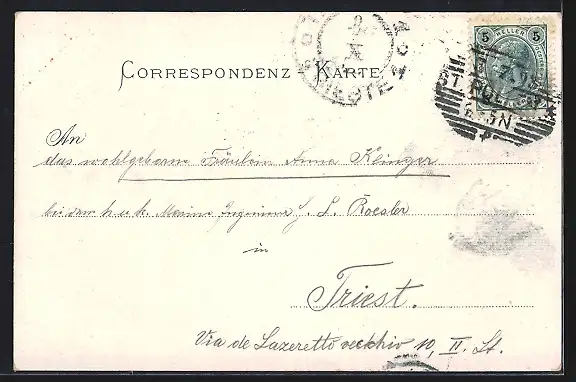 5 HELLER 5
CORRESPONDENZ-KARTE
TRIESTE
ST. PÖL
An
das wohlgeborne Fräulein Anna Klinger
bei dem k. u. k. Marine Ingenieur J. L. Roesler
in
Triest.
Via de Lazeretto vecchio 10, II. St.